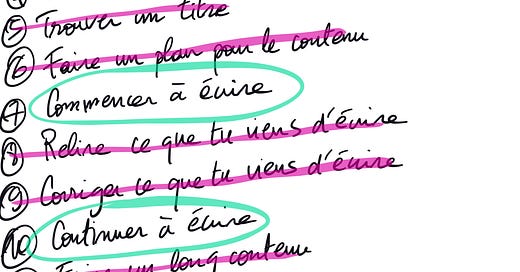 ⑤ Trouver un titre
⑥ Faire un plan pour le contenu
⑦ Commencer à écrire
⑧ Relire ce que tu viens d'écrire
⑨ Corriger ce que tu viens d'écrire
⑩ Continuer à écrire
Faire un long contenu